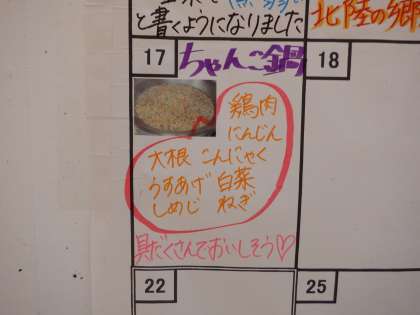 と書くようになりました
北陸の郷
17
ちゃんこ鍋
18
鶏肉
にんじん
大根 こんにゃく
うすあげ 白菜
しめじ ねぎ
具だくさんでおいしそう♡
22
25